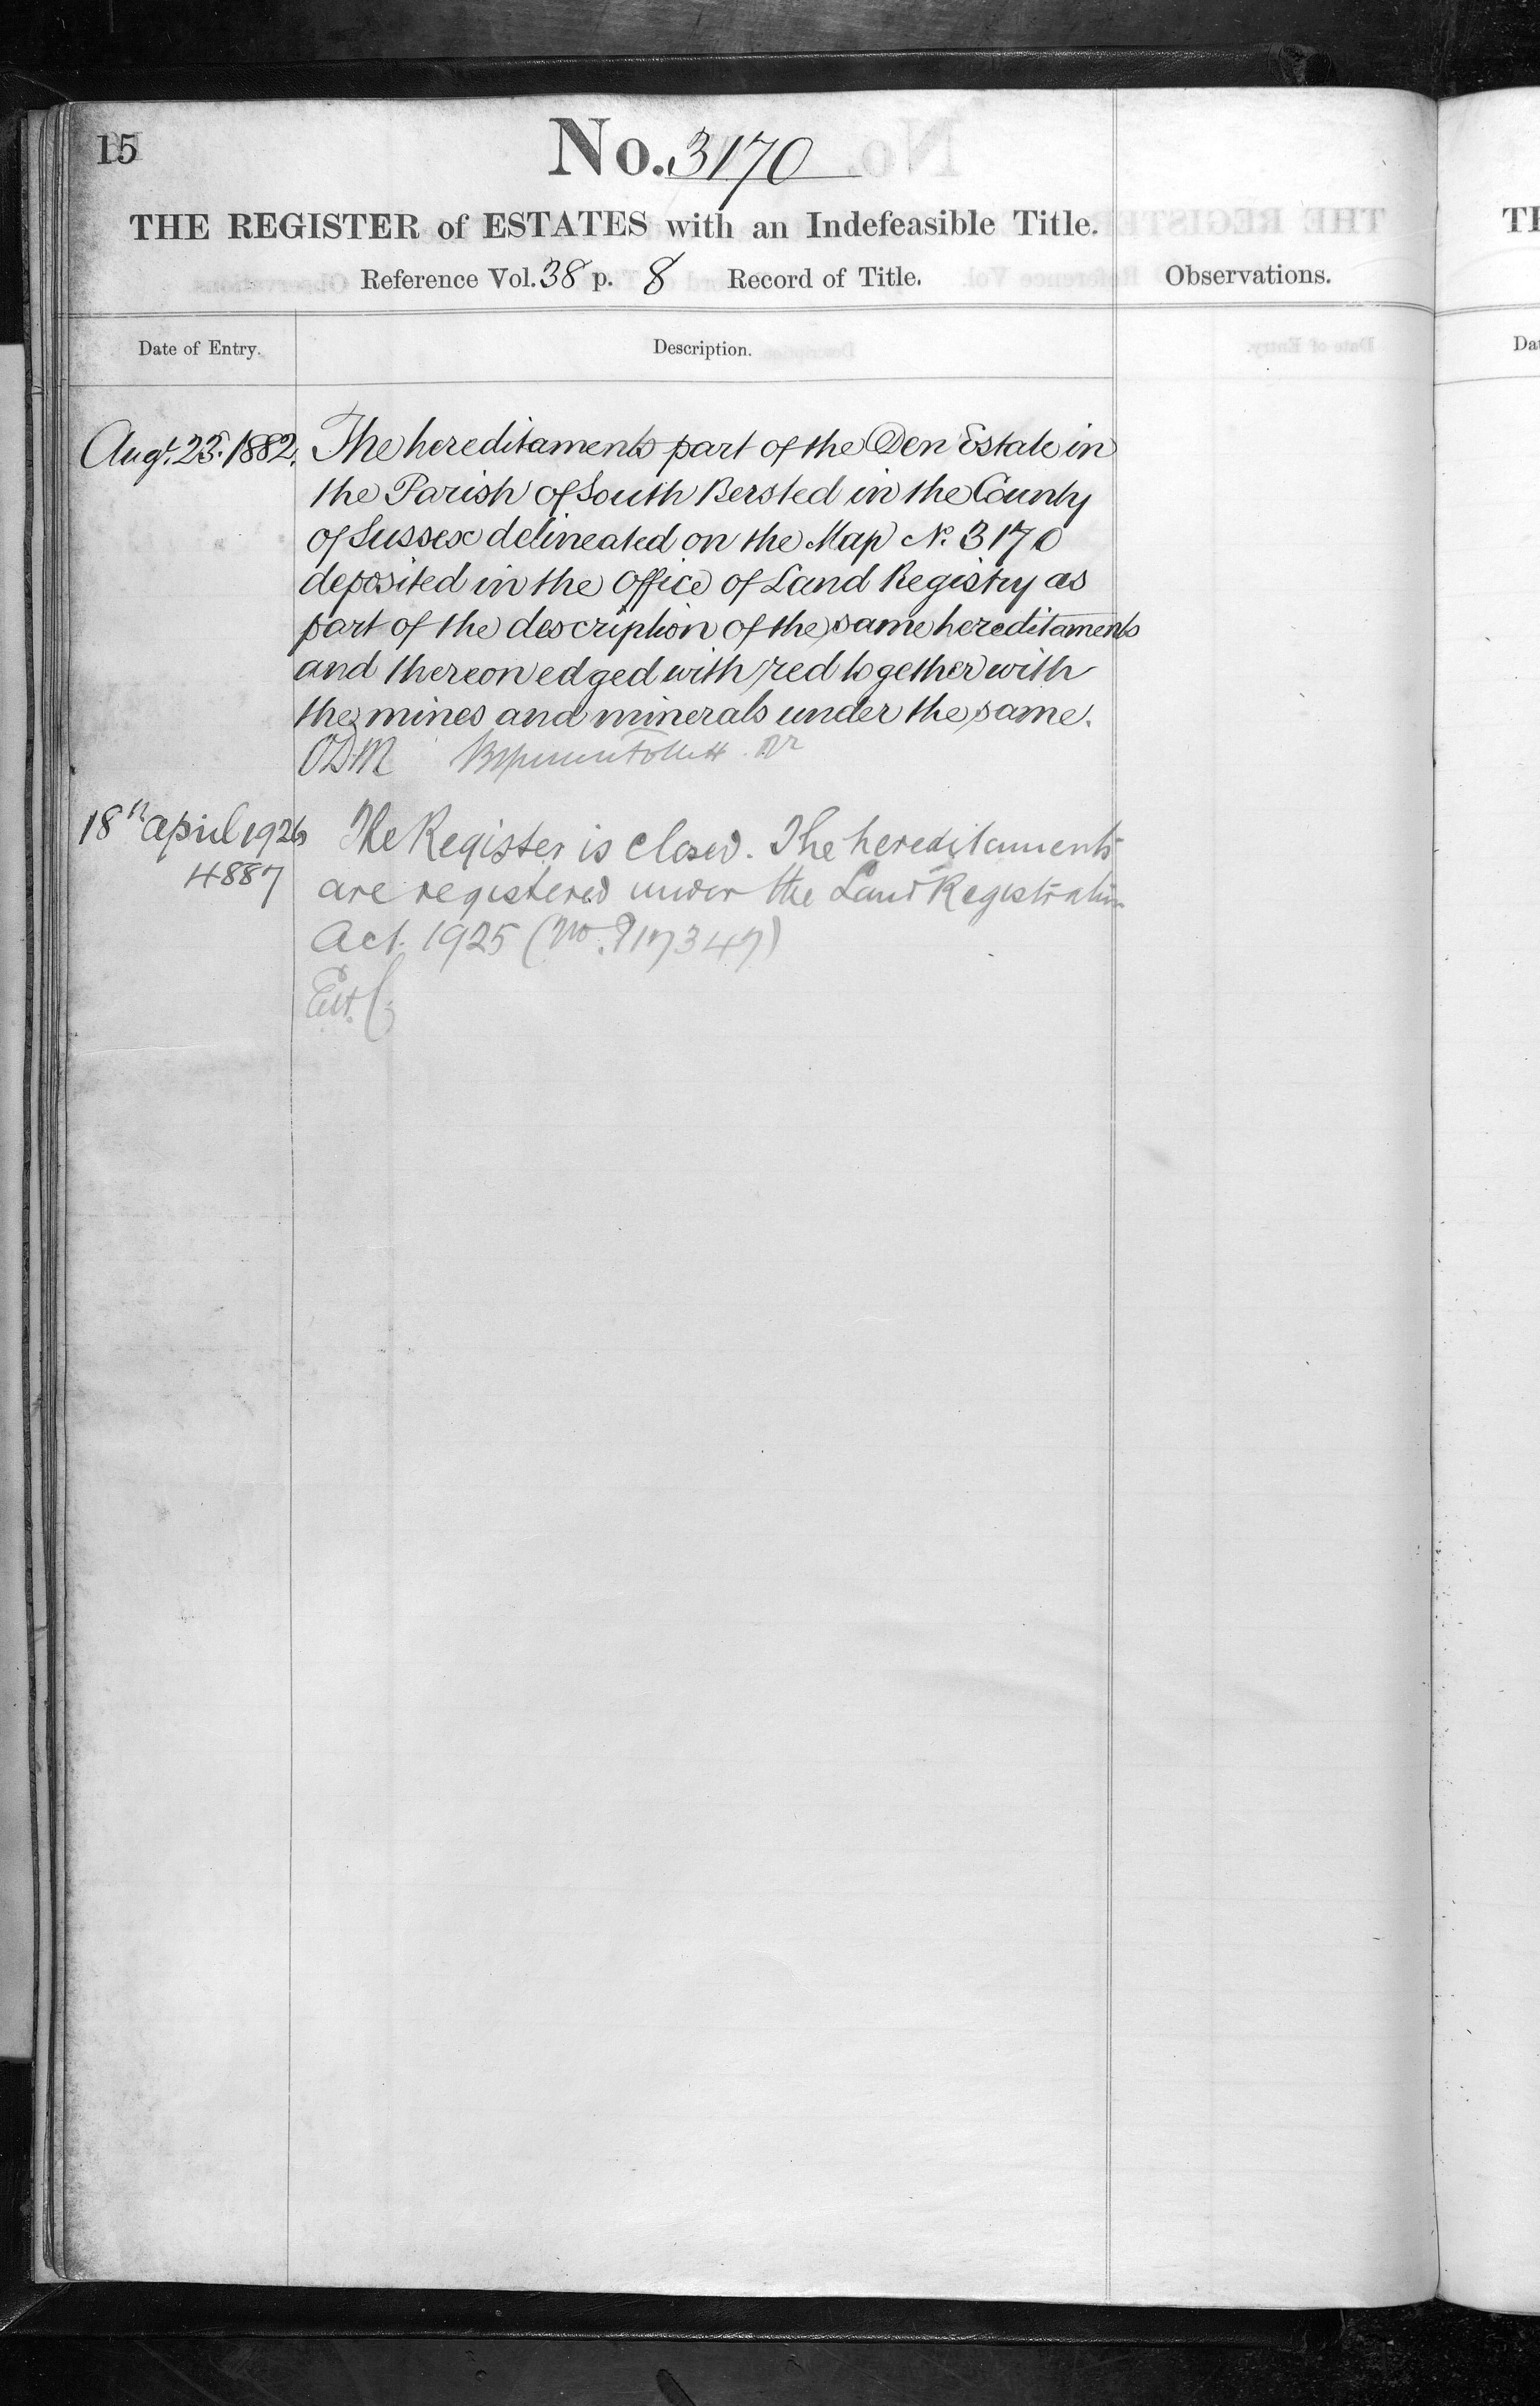 15
No. 3170
THE REGISTER of ESTATES with an Indefeasible Title.
Reference Vol. 38 p. 8 Record of Title.
Observations.
Date of Entry.
Description.
Augt. 25. 1882.
The hereditaments part of the Den Estate in
the Parish of South Bersted in the County
of Sussex delineated on the Map No. 3170
deposited in the Office of Land Registry as
part of the description of the same hereditaments
and thereon edged with red together with
the mines and minerals under the same.
ODM
18th April 1926
4887
The Register is closed. The hereditaments
are registered under the Land Registration
Act. 1925 (No. P17347)